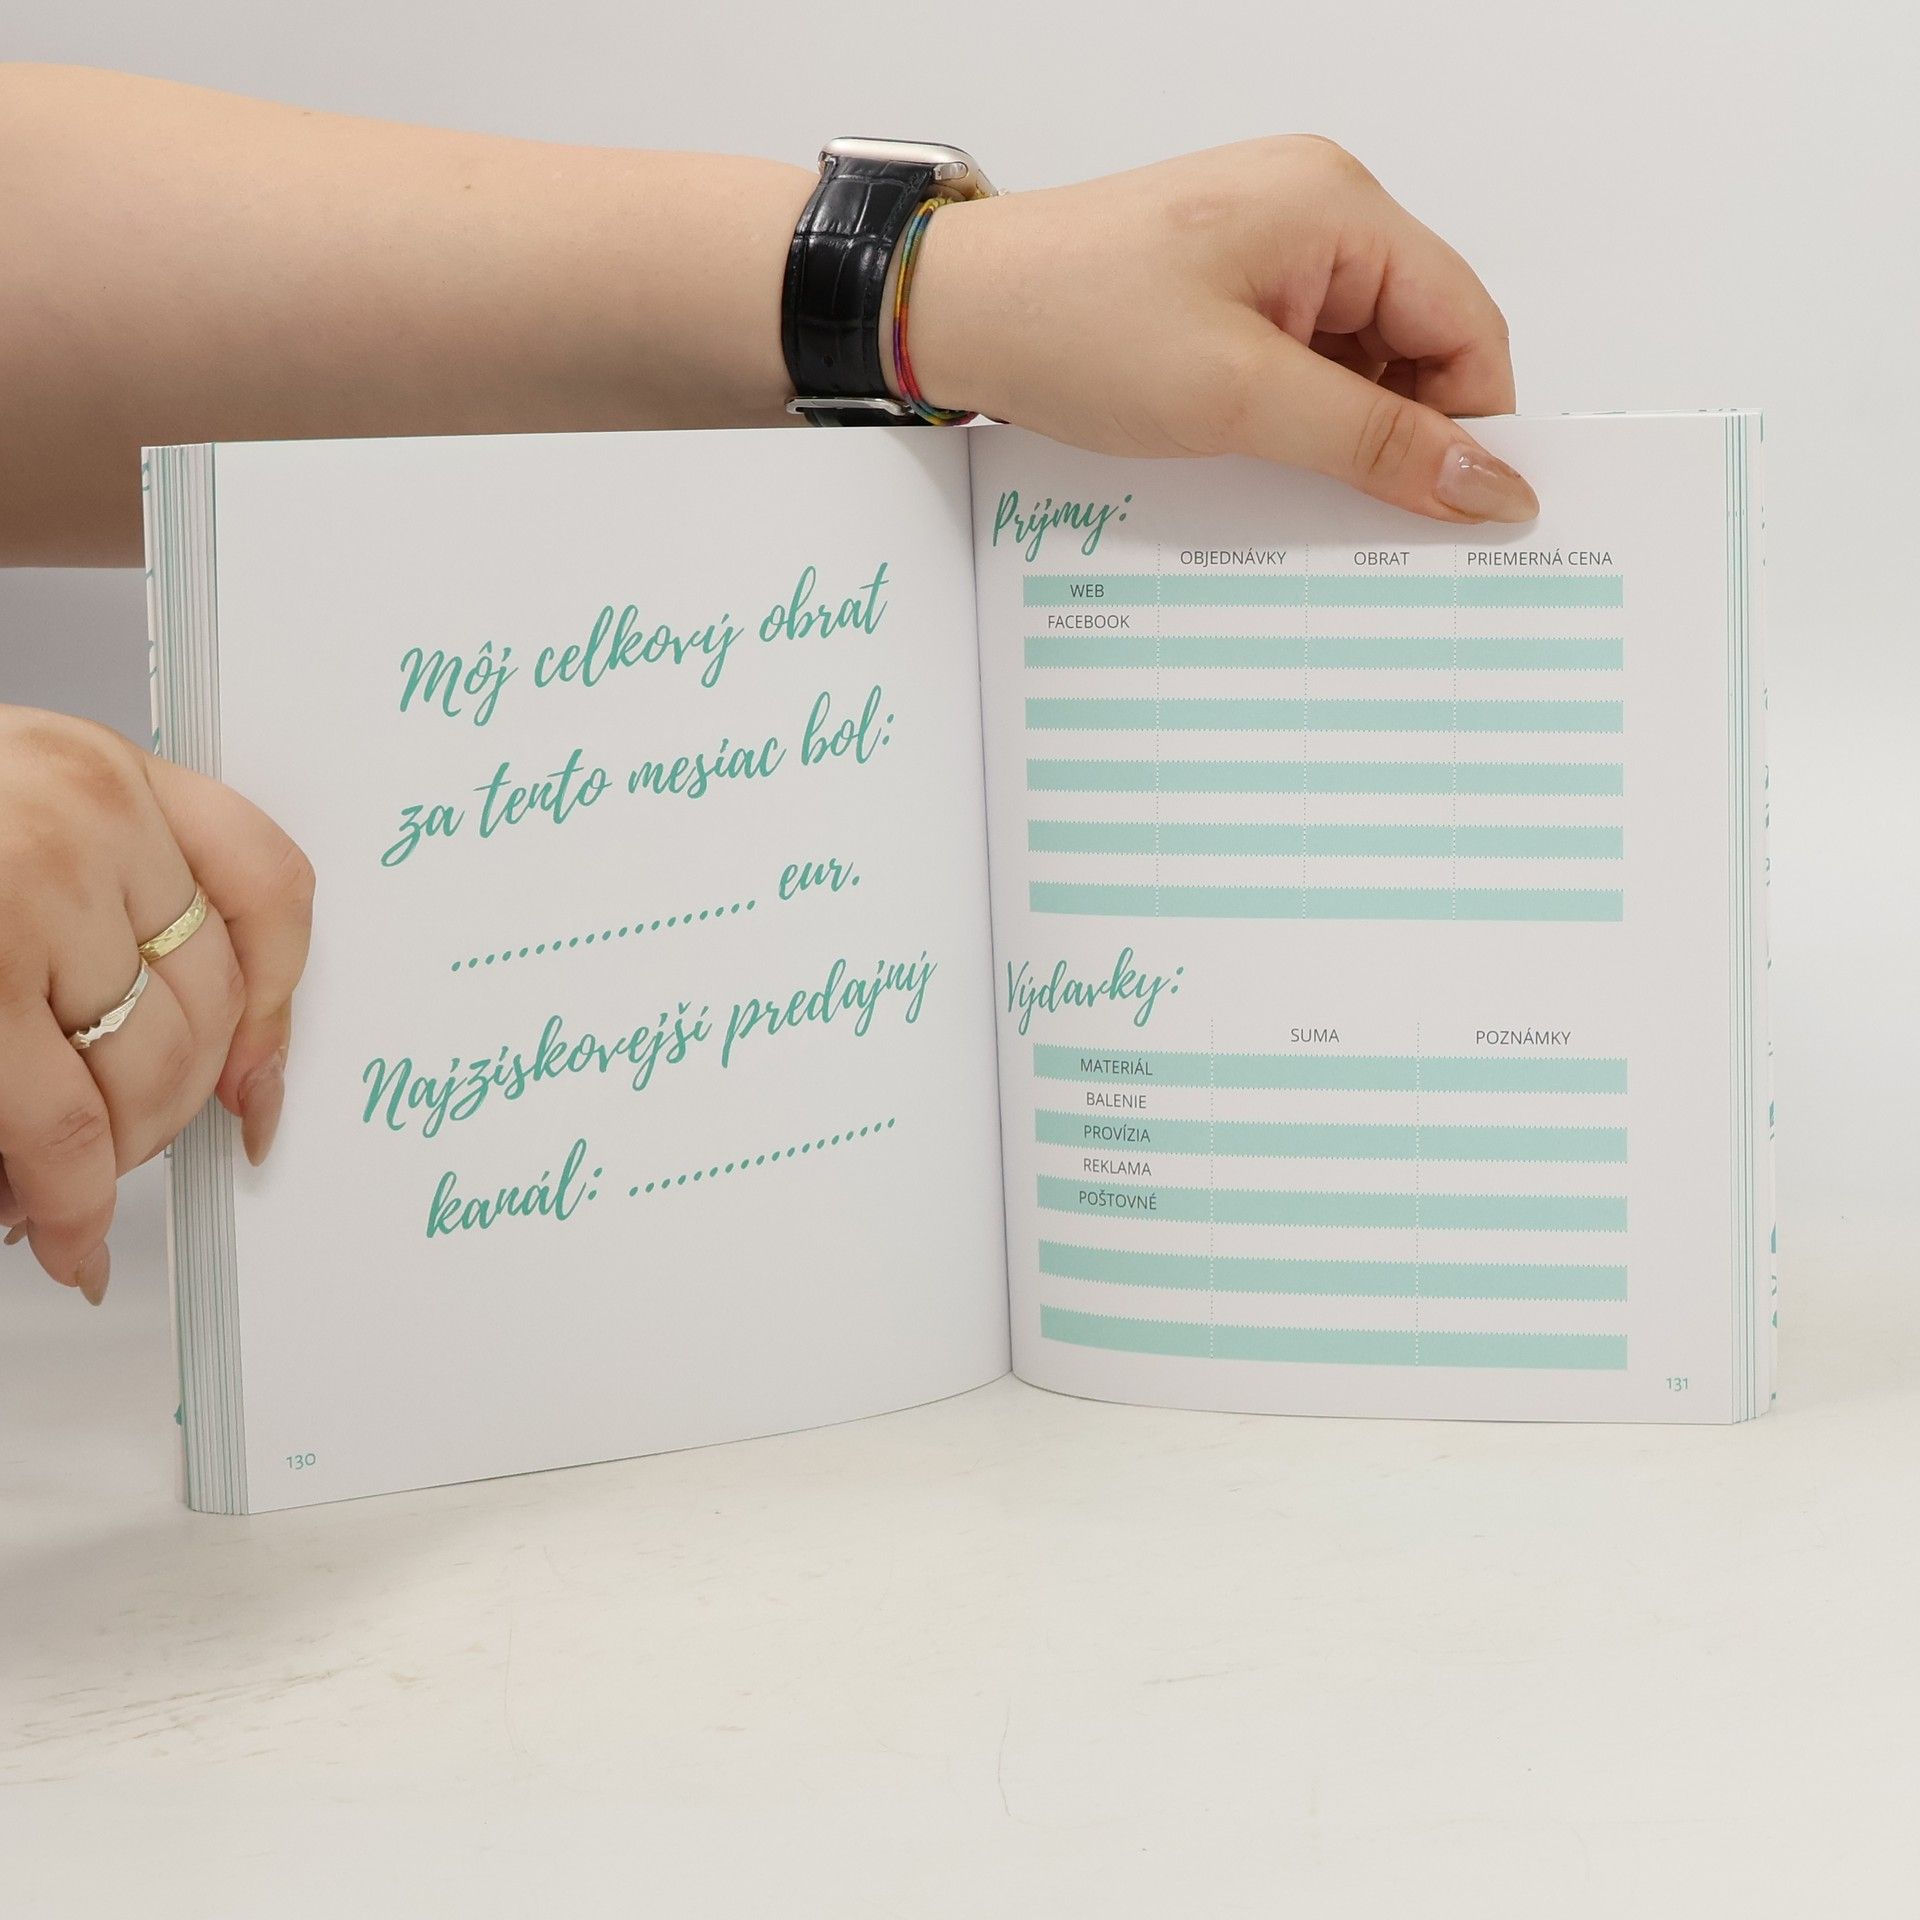 Môj celkový obrat
za tento mesiac bol:
................... eur.
Najziskovejší predajný
kanál: ....................
130
Príjmy:
OBJEDNÁVKY OBRAT PRIEMERNÁ CENA
WEB
FACEBOOK
Výdavky:
SUMA POZNÁMKY
MATERIÁL
BALENIE
PROVÍZIA
REKLAMA
POŠTOVNÉ
131